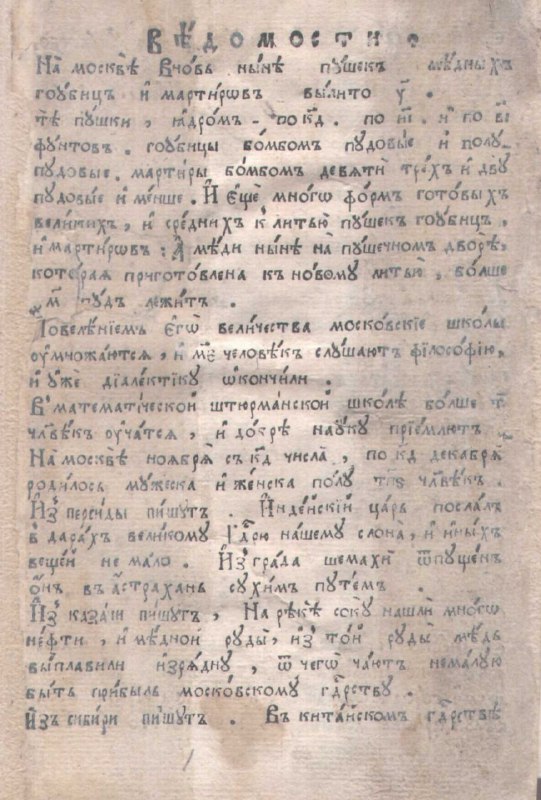 ВѢДОМОСТИ .
На москвѣ вновь нынѣ пушекъ мѣдныхъ
гоубицъ и мартировъ вылито у҃ .
тѣ пушки , ядромъ - по к҃д . по и҃і . и по в҃і
фунтовъ . гоубицы бомбомъ пудовые и полу_
пудовые . мартиры бомбомъ девяти трехъ и дву
пудовые и менше . И еще многѡ формъ готовыхъ
великихъ , и среднихъ к литью пушекъ гоубицъ ,
и мартировъ : А мѣди нынѣ на пушечномъ дворѣ,
которая приготовлена къ новому литью , болше
м҃ пудъ лежитъ .
Повелѣніемъ егѡ величества московские школы
оумножаются , и м҃е человѣкъ слушаютъ філософію ,
и уже діалектіку ѡкончили .
В математіческой штюрманской школѣ болше т҃
члвѣкъ оучатся , и добрѣ науку пріемлютъ .
На москвѣ ноября съ к҃д числа , по к҃д декабря
родилось мужеска и женска полу т҃п҃ѕ члвѣкъ .
Из персиды пишутъ . Индейскїй царь послалъ
в дарахъ великому гдрю нашему слона , и иныхъ
вещей не мало . Из града шемахи ѿпущенъ
ѻнъ въ астрахань сухимъ путемъ .
Из казани пишутъ , На рѣкѣ соку нашли многѡ
нефти , и мѣдной руды , из той руды мѣдь
выплавили изрядну , ѿ чегѡ чаютъ немалую
быть прибыль московскому гдрству .
Изъ сибири пишутъ . Въ китайскомъ гдрствѣ